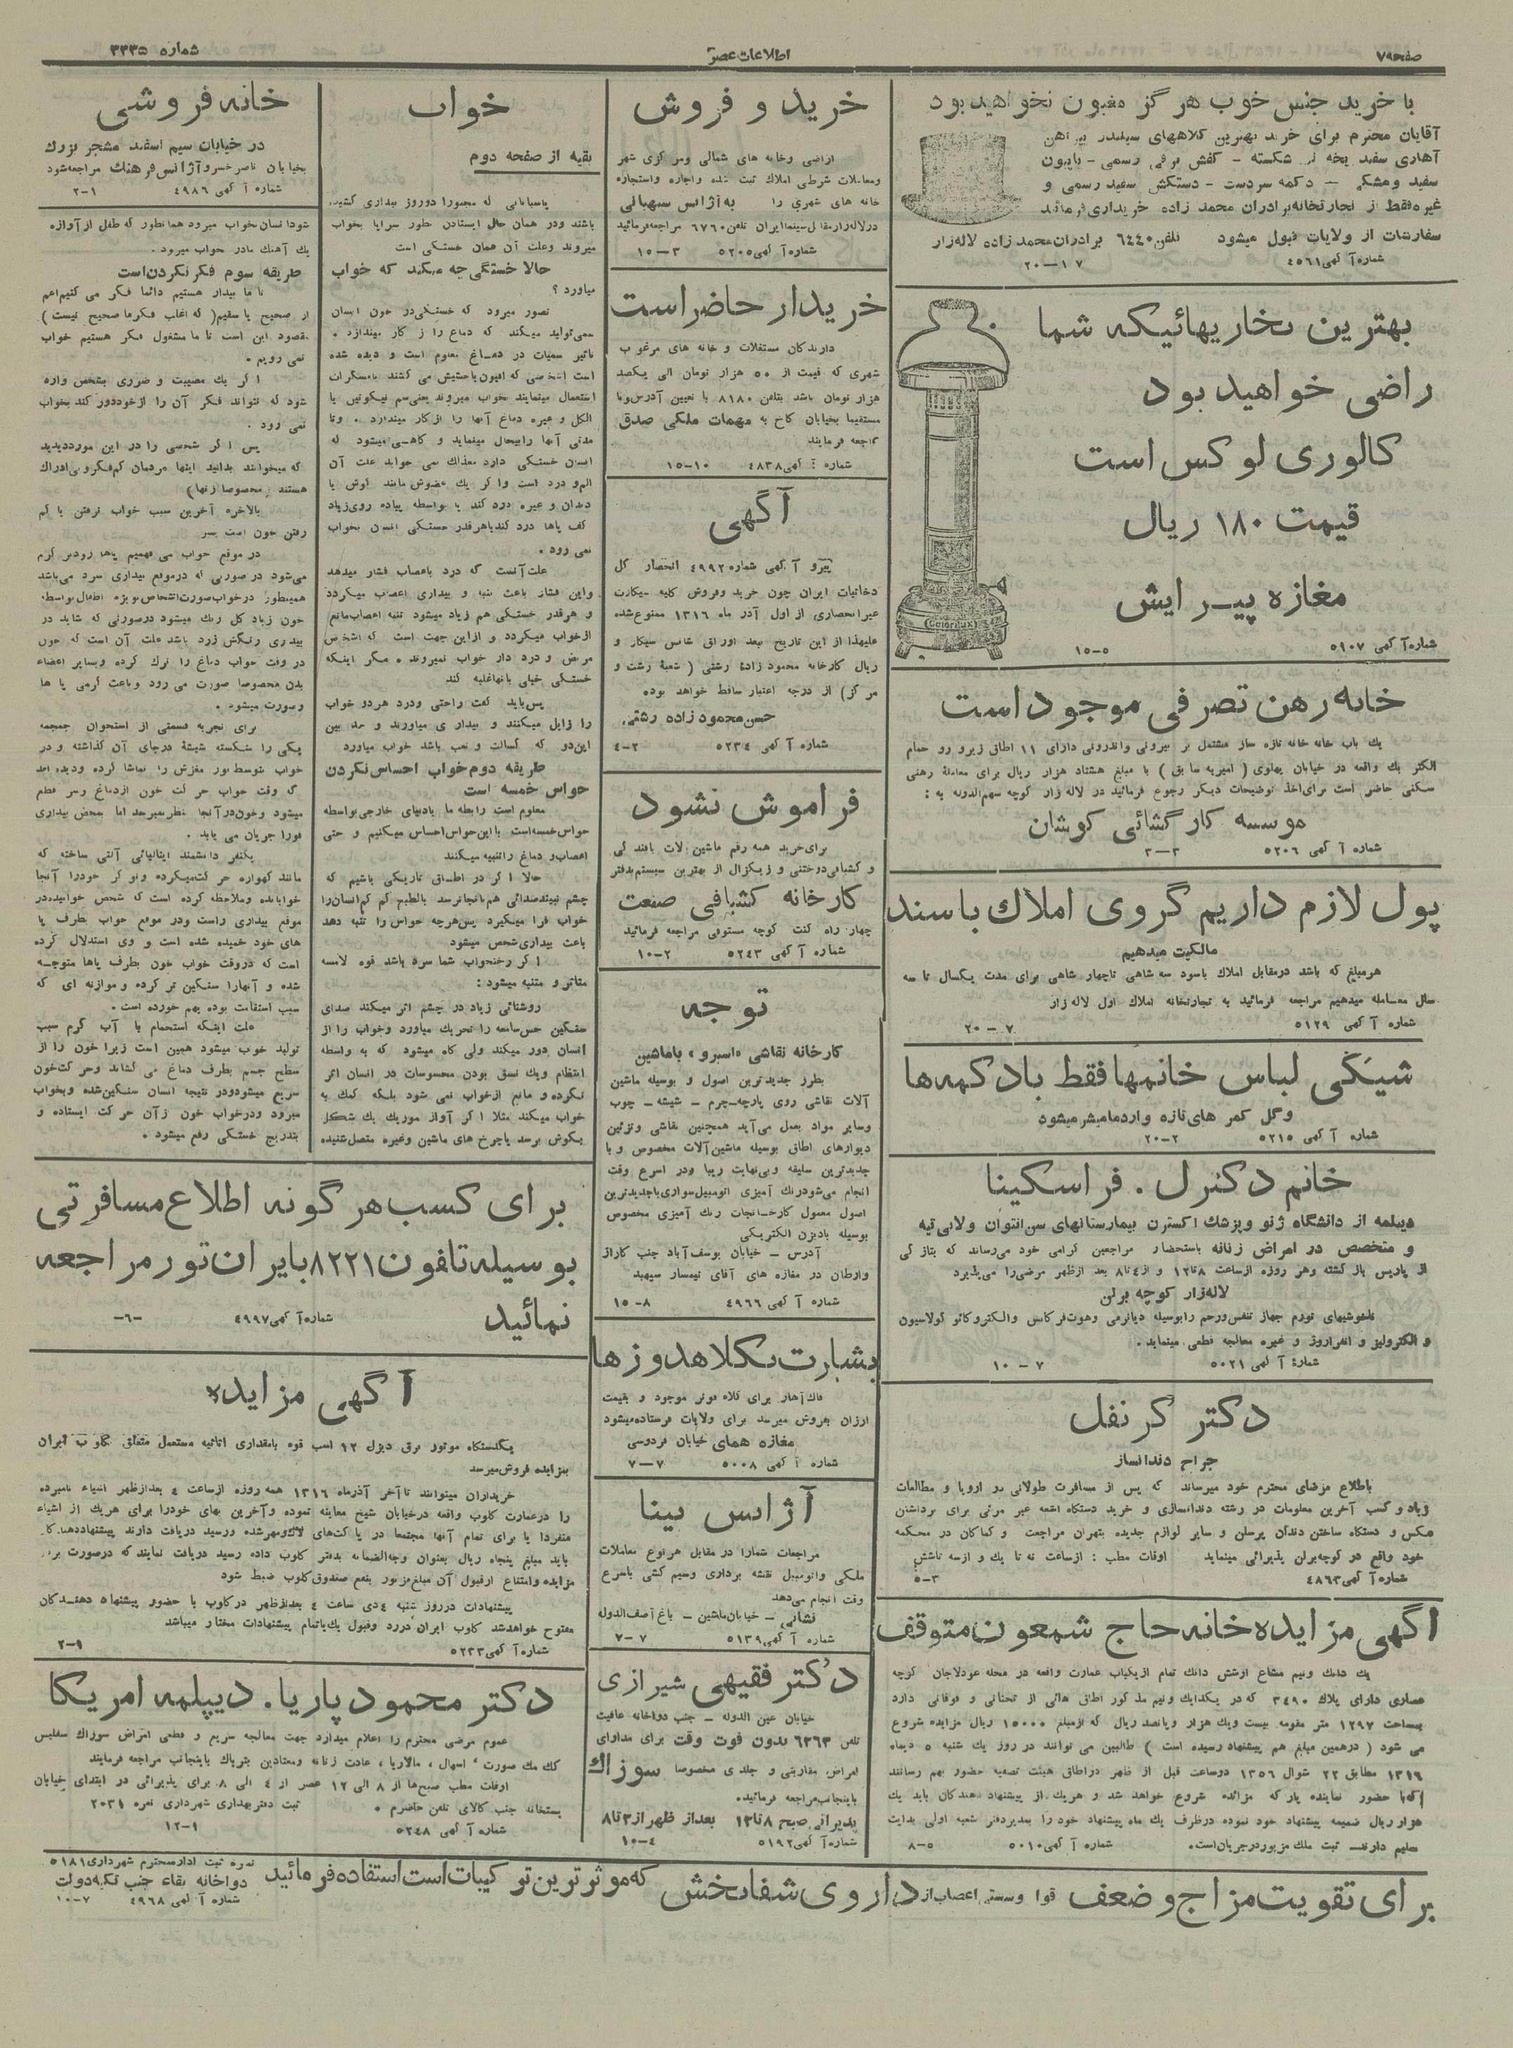 صفحه ۷۹
اطلاعات عصر
شماره ۳۳۳۵
با خرید جنس خوب هرگز مغبون نخواهید بود
آقایان محترم برای خرید بهترین کلاههای سیلندر پیراهن
آهاری سفید یخه نی شکسته - کفش برقی رسمی - پاپیون
سفید و مشکی - دکمه سردست - دستکش سفید رسمی و
غیره فقط از تجارتخانه برادران محمد زاده خریداری فرمائید
سفارشات از ولایات قبول میشود تلفن ۶۴۴۰ برادران محمد زاده لاله زار
شماره آگهی ۴۵۶۱ ۱۷-۲۰
بهترین بخاریهائیکه شما
راضی خواهید بود
کالوری لوکس است
قیمت ۱۸۰ ریال
مغازه پیرایش
شماره آگهی ۵۱۰۷ ۵-۱۵
خانه رهن تصرفی موجود است
یک باب خانه خانه تازه ساز مشتمل بر بیرونی و اندرونی دارای ۱۱ اطاق زیر و رو حمام
الکتریک واقعه در خیابان پهلوی (امیریه سابق) با مبلغ هشتاد هزار ریال برای معامله رهنی
سکنی حاضر است برای اخذ توضیحات دیگر رجوع فرمائید در لاله زار کوچه سهم الدوله به:
موسسه کارگشائی کوشان
شماره آگهی ۵۲۰۶ ۳-۳
پول لازم داریم گروی املاک با سند
مالکیت میدهیم
هر مبلغ که باشد در مقابل املاک با سود سه شاهی تا چهار شاهی برای مدت یکسال تا سه
سال معامله میدهیم مراجعه فرمائید به تجارتخانه املاک اول لاله زار
شماره آگهی ۵۱۲۹ ۷-۲۰
شیکی لباس خانمها فقط با دکمه ها
و گل کمر های تازه وارد ما میسر میشود
شماره آگهی ۵۲۱۵ ۲-۲۰
خانم دکترل. فراسکینا
دیپلمه از دانشگاه ژنو و پزشک اکسترن بیمارستانهای سن انتوان ولانی تیه
و متخصص در امراض زنانه باستحضار مراجعین گرامی خود می‌رساند که بتازگی
از پاریس بازگشته و هر روزه از ساعت ۸ تا ۱۲ و از ۴ تا ۸ بعد از ظهر مرضی را می‌پذیرد
لاله زار کوچه برلن
و الکترولیز و انفراروژ و غیره معالجه قطعی مینماید.
شماره آگهی ۵۰۲۱ ۷-۱۰
دکتر گرنفل
جراح دندانساز
باطلاع مرضای محترم خود میرساند که پس از مسافرت طولانی در اروپا و مطالعات
زیاد و کسب آخرین معلومات در رشته دندانسازی و خرید دستگاه اشعه غیر مرئی برای برداشتن
عکس و دستگاه ساختن دندان پرسلن و سایر لوازم جدیده بتهران مراجعت و کماکان در محکمه
خود واقع در کوچه برلن پذیرائی مینماید اوقات مطب : از ساعت نه تا یک و از سه تا شش
شماره آگهی ۴۸۶۳ ۳-۵
آگهی مزایده خانه حاج شمعون متوقف
یک دانگ و نیم مشاع از شش دانگ تمام از یکباب عمارت واقعه در محله عودلاجان کوچه
عصاری دارای پلاک ۳۴۹۰ که در یکدانگ و نیم مذکور اطاق هائی از تحتانی و فوقانی دارد
بمساحت ۱۲۹۷ متر مقومه بیست و یک هزار و پانصد ریال که از مبلغ ۱۵۰۰۰ ریال مزایده شروع
می شود (در همین مبلغ هم پیشنهاد رسیده است) طالبین می توانند در روز یک شنبه ۵ دیماه
۱۳۱۶ مطابق ۲۲ شوال ۱۳۵۶ دو ساعت قبل از ظهر در اطاق هیئت تصفیه حضور بهم رسانند
که با حضور نماینده پارکه مزائده شروع خواهد شد و هر یک از پیشنهاد دهندگان باید یک
هزار ریال ضمیمه پیشنهاد خود نموده در ظرف یک ماه پیشنهاد خود را بمدیر دفتر شعبه اولی بدایت
تسلیم دارند ثبت ملک مزبور در جریان است. شماره آگهی ۵۰۱۰ ۵-۸
خرید و فروش
اراضی و خانه های شمالی و مرکزی شهر
و معاملات شرطی املاک ثبت شده و اجاره و استجاره
خانه های شهری را به آژانس سبهانی
در لاله زار مقابل سینما ایران تلفن ۶۷۶۰ مراجعه فرمائید
شماره آگهی ۵۲۰۵ ۳-۱۵
خریدار حاضر است
دارندگان مستغلات و خانه های مرغوب
شهری که قیمت از ۵۰ هزار تومان الی یکصد
هزار تومان باشد بتلفن ۸۱۸۰ با تعیین آدرس و یا
مستقیما بخیابان کاخ به مهمات ملکی صدق
مراجعه فرمایند
شماره آگهی ۴۸۳۸ ۱۰-۱۵
آگهی
پیرو آگهی شماره ۴۹۹۲ انحصار کل
دخانیات ایران چون خرید و فروش کلیه سیگارت
غیر انحصاری از اول آذر ماه ۱۳۱۶ ممنوع شده
علیهذا از این تاریخ ببعد اوراق شانس سیگار و
ریال کارخانه محمود زاده رشتی (شعبه رشت و
مرکز) از درجه اعتبار ساقط خواهد بود
حسن محمود زاده رشتی
شماره آگهی ۵۲۳۴ ۲-۴
فراموش نشود
برای خرید همه رقم ماشین آلات بافندگی
و کشبافی دوختنی و زیگزال از بهترین سیستم بدفتر
کارخانه کشبافی صنعت
چهار راه کنت کوچه مستوفی مراجعه فرمائید
شماره آگهی ۵۲۴۳ ۲-۱۰
توجه
کارخانه نقاشی «اسپرو» با ماشین
بطرز جدیدترین اصول و بوسیله ماشین
آلات نقاشی روی پارچه - چرم - شیشه - چوب
و سایر مواد بعمل می‌آید همچنین نقاشی و تزئین
دیوارهای اطاق بوسیله ماشین آلات مخصوص و با
جدیدترین سلیقه و بی‌نهایت زیبا و در اسرع وقت
انجام می‌شود رنگ آمیزی اتومبیل سواری با جدیدترین
اصول معمول کارخانجات رنگ آمیزی مخصوص
بوسیله بادبزن الکتریکی
آدرس - خیابان یوسف آباد جنب گاراژ
وارطان در مغازه های آقای تیمسار سپهبد
شماره آگهی ۴۹۶۶ ۸-۱۵
بشارت بکلاهدوزها
ارزان بفروش میرسد برای ولایات فرستاده میشود
مغازه همای خیابان فردوسی
شماره آگهی ۵۰۰۸ ۷-۷
آژانس بینا
مراجعات شما را در مقابل هر نوع معاملات
ملکی و اتومبیل نقشه برداری و سیم کشی باسرع
وقت انجام می‌دهد
نشانی - خیابان ماشین - باغ آصف الدوله
شماره آگهی ۵۱۳۹ ۷-۷
دکتر فقیهی شیرازی
خیابان عین الدوله - جنب دواخانه عافیت
تلفن ۶۳۶۳ بدون فوت وقت برای مداوای
امراض مقاربتی و جلدی مخصوصا سوزاک
باینجانب مراجعه فرمائید.
پذیرائی صبح ۸ تا ۱۲ بعد از ظهر از ۳ تا ۸
شماره آگهی ۵۱۹۲ ۴-۱۰
خواب
بقیه از صفحه دوم
پاسبانانی که مجبورا دو روز بیداری کشیده
باشند و در همان حال ایستادن بطور سراپا بخواب
میروند و علت آن همان خستگی است
حالا خستگی چه میکند که خواب
میاورد ؟
تصور میرود که خستگی در خون انسان
سمی تولید میکند که دماغ را از کار میاندازد .
تاثیر سمیات در دماغ معلوم است و دیده شده
است اشخاصی که افیون یا حشیش می کشند یا مسکرات
استعمال مینمایند خواب میروند یعنی سم نیکوتین یا
الکل و غیره دماغ آنها را از کار میندازد . و تا
مدتی آنها را بیحال مینماید و گاهی میشود که
انسان خستگی دارد معذلک نمی خوابد علت آن
الم و درد است و اگر یک عضوش مانند گوش یا
دندان و غیره درد کند یا بواسطه پیاده روی زیاد
کف پاها درد کند یا هر قدر خستگی انسان بخواب
نمی رود .
علت آنست که درد باعصاب فشار میدهد
و این فشار باعث تنبه و بیداری اعصاب میگردد
و هر قدر خستگی هم زیاد میشود تنبه اعصاب مانع
از خواب میگردد و از این جهت است که اشخاص
مریض و درد دار خواب نمیروند . مگر اینکه
خستگی خیلی بآنها غلبه کند
پس باید گفت راحتی و درد هر دو خواب
را زایل میکنند و بیداری میاورند و حد بین
این دو که کسالت و تعب باشد خواب میاورد
طریقه دوم خواب احساس نکردن
حواس خمسه است
معلوم است رابطه ما با دنیای خارجی بواسطه
حواس خمسه است با این حواس احساس میکنیم و حتی
اعصاب و دماغ را تنبیه میکنند
حالا اگر در اطاق تاریکی باشیم که
چشم نبیند صدائی هم بآنجا نرسد بالطبع کم کم انسان را
خواب فرا میگیرد پس هرچه حواس را تنبه دهد
باعث بیداری شخص میشود
اگر رختخواب شما سرد باشد قوه لامسه
متاثر و متنبه میشود :
روشنائی زیاد در چشم اثر میکند صدای
سنگین حس سامعه را تحریک میاورد و خواب را از
انسان دور میکند ولی گاه میشود که به واسطه
انتظام و یک نسق بودن محسوسات در انسان اثر
نکرده و مانع از خواب نمی شود بلکه کمک به
خواب میکند مثلا اگر آواز موزیک یک شکل
بگوش برسد یا چرخ های ماشین و غیره متصل شنیده
خانه فروشی
در خیابان سیم اسفند مشجر بزرگ
بخیابان ناصر خسرو آژانس فرهنگ مراجعه شود
شماره آگهی ۴۹۸۶ ۱-۲
شود انسان خواب میرود همانطور که طفل از آوازه
یک آهنگ مادر خواب میرود.
طریقه سوم فکر نکردن است
تا ما بیدار هستیم دائما فکر می کنیم اعم
از صحیح یا سقیم (که اغلب فکرها صحیح نیست)
مقصود این است تا ما مشغول فکر هستیم خواب
نمی رویم .
اگر یک مصیبت و ضرری بشخص وارد
شود که نتواند فکر آن را از خود دور کند بخواب
نمی رود .
پس اگر شخصی را در این مورد دیدید
که میخوابند بدانید اینها مردمان کم فکر و بی ادراک
هستند (مخصوصا زنها)
بالاخره آخرین سبب خواب نرفتن یا کم
رفتن خون است بسر
در موقع خواب می فهمیم پاها زودتر گرم
می‌شود در صورتی که در موقع بیداری سرد می‌باشد
همینطور در خواب صورت اشخاص بویژه اطفال بواسطه
خون زیاد گل رنگ میشود در صورتی که شاید در
بیداری رنگش زرد باشد علت آن است که خون
در وقت خواب دماغ را ترک کرده و بسایر اعضاء
بدن مخصوصا صورت می رود و باعث گرمی پا ها
و صورت میشود .
برای تجربه قسمتی از استخوان جمجمه
یکی را شکسته شیشه در جای آن گذاشته و در
خواب متوسط نور مغزش را تماشا کرده و دیده اند
که وقت خواب حرکت خون از دماغ و سر قطع
میشود و خون در آنجا بنظر نمیرسد اما بمحض بیداری
فورا جریان می یابد .
یکنفر دانشمند ایتالیائی آلتی ساخته که
مانند گهواره حرکت میکرده و نوکر خود را آنجا
خوابانده و ملاحظه کرده است که شخص خوابیده در
موقع بیداری راست و در موقع خواب بطرف پا
های خود خمیده شده است و وی استدلال کرده
است که در وقت خواب خون بطرف پاها متوجه
شده و آنها را سنگین تر کرده و موازنه ای که
سبب استقامت بوده بهم خورده است .
علت اینکه استحمام با آب گرم سبب
تولید خوب میشود همین است زیرا خون را از
سطح جسم بطرف دماغ می کشاند و حرکت خون
سریع میشود در نتیجه انسان سنگین شده و بخواب
میرود و در خواب خون از آن حرکت ایستاده و
بتدریج خستگی رفع میشود .
برای کسب هر گونه اطلاع مسافرتی
بوسیله تلفون ۸۲۲۱ بایران تور مراجعه
نمائید
شماره آگهی ۴۹۹۷ -۶-
آگهی مزایده
یکدستگاه موتور برق دیزل ۱۲ اسب قوه بامقداری اثاثیه مستعمل متعلق بکلوب ایران
بمزایده فروش میرسد
خریداران میتوانند تا آخر آذرماه ۱۳۱۶ همه روزه از ساعت ۴ بعد از ظهر اشیاء نامبرده
را در عمارت کلوب واقعه در خیابان شیخ معاینه نموده و آخرین بهای خود را برای هر یک از اشیاء
منفردا یا برای تمام آنها مجتمعا در پاکت‌های لاک و مهر شده و رسید دریافت دارند پیشنهاد دهندگان
باید مبلغ پنجاه ریال بعنوان وجه الضمانه بدفتر کلوب داده رسید دریافت نمایند که در صورت برد
مزایده و امتناع از قبول آن مبلغ مزبور بنفع صندوق کلوب ضبط شود
پیشنهادات در روز شنبه ۴ دی ساعت ۴ بعد از ظهر در کلوب با حضور پیشنهاد دهندگان
مفتوح خواهد شد کلوب ایران در رد و قبول یک یا تمام پیشنهادات مختار میباشد
شماره آگهی ۵۲۳۳ ۱-۲
دکتر محمود پاریا. دیپلمه امریکا
عموم مرضی محترم را اعلام میدارد جهت معالجه سریع و قطعی امراض سوزاک سفلیس
کک مک صورت، اسهال، مالاریا، عادت زنانه و معتادین بتریاک باینجانب مراجعه فرمایند
اوقات مطب صبح‌ها از ۸ الی ۱۲ عصر از ۴ الی ۸ برای پذیرائی در ابتدای خیابان
پستخانه جنب کالای تلفن حاضرم . ثبت دفتر بهداری شهرداری نمره ۲۰۳۱
شماره آگهی ۵۲۴۸ ۱-۱۲
برای تقویت مزاج و ضعف قوا و سستی اعصاب از داروی شفابخش که موثرترین ترکیبات است استفاده فرمائید
نمره ثبت اداره محترم شهرداری ۵۱۸۱
دواخانه بقاء جنب تکیه دولت
شماره آگهی ۴۹۶۸ ۷-۱۰